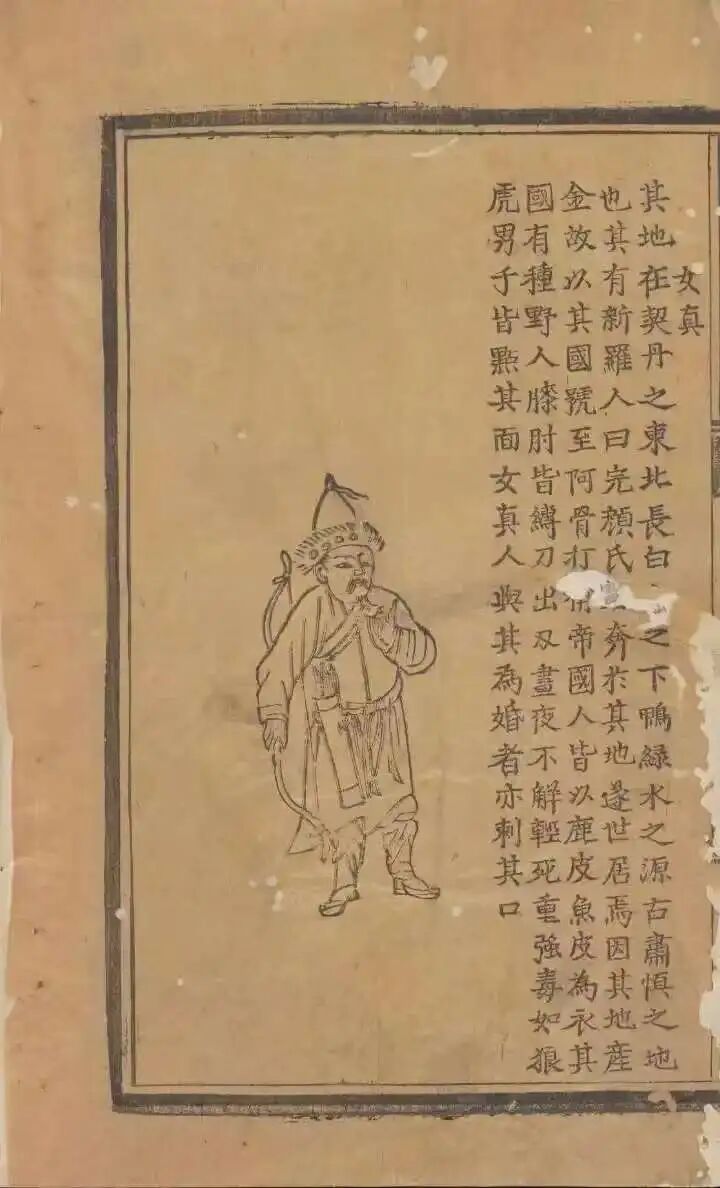 女真
其地在契丹之東北長白之下鴨綠水之源古肅慎之地
也其有新羅人曰完顏氏奔於其地遂世居焉因其地產
金故以其國號至阿骨打稱帝國人皆以鹿皮魚皮為衣其
國有種野人膝肘皆縛刀出刄晝夜不解輕死重強毒如狼
虎男子皆黥其面女真人與其為婚者亦刺其口